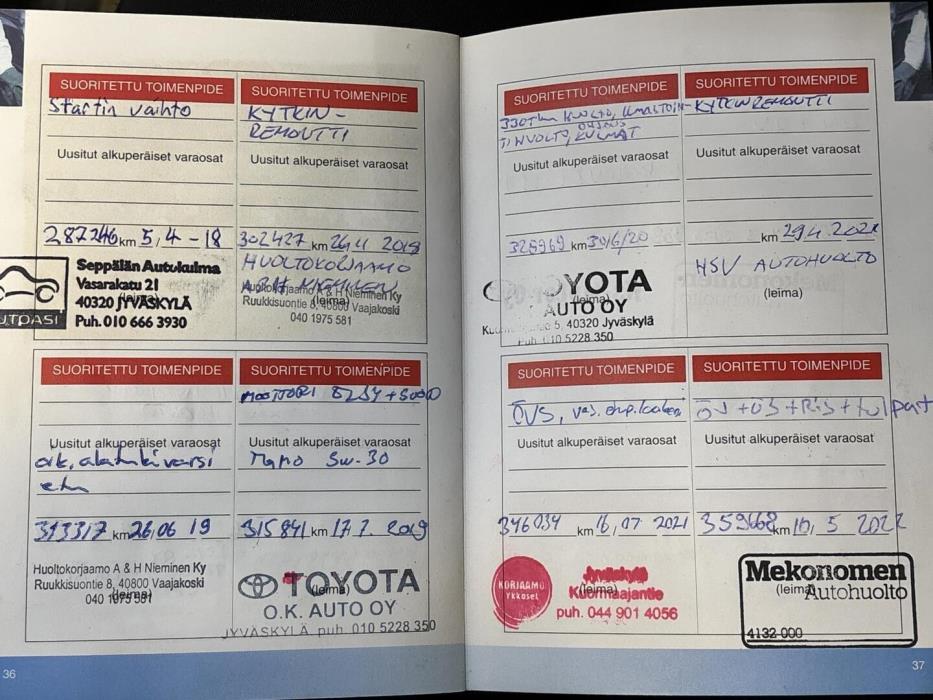 SUORITETTU TOIMENPIDE
Startin vaihto
Uusitut alkuperäiset varaosat
287246 km 5,4-18
Seppälän Autokulma
Vasarakatu 21
40320 JYVÄSKYLÄ
(leima)
Puh. 010 666 3930
SUORITETTU TOIMENPIDE
KYTKIN-
REMONTTI
Uusitut alkuperäiset varaosat
302427 km
HUOLTOKORJAAMO
A & H NIEMINEN
Huoltokorjaamo A & H Nieminen Ky
(leima)
Ruukkisuontie 8, 40800 Vaajakoski
040 1975 581
SUORITETTU TOIMENPIDE
Uusitut alkuperäiset varaosat
oik. alatukivarsi
etu
313317 km 26.06 19
Huoltokorjaamo A & H Nieminen Ky
Ruukkisuontie 8, 40800 Vaajakoski
(leima)
040 1975 581
SUORITETTU TOIMENPIDE
MOOTTORI
Uusitut alkuperäiset varaosat
5W-30
315841 km 17.7. 2019
TOYOTA
(leima)
O.K. AUTO OY
JYVÄSKYLÄ puh. 010 5228 350
36
SUORITETTU TOIMENPIDE
330Tkm HUOLTO, ILMASTOIN-
TINHUOLTO, OHJAUS
KULMAT
Uusitut alkuperäiset varaosat
328969 km 30/6/20
OYOTA
(leima)
AUTO OY
5, 40320 Jyväskylä
puh. 010 5228 350
SUORITETTU TOIMENPIDE
KYTKINREMONTTI
Uusitut alkuperäiset varaosat
km 29.4.2021
HSV AUTOHUOLTO
(leima)
SUORITETTU TOIMENPIDE
ÖVS, vas.
Uusitut alkuperäiset varaosat
346034 km 16, 07 2021
KORJAAMO
Ykköset
Jyväskylä
(leima)
Kuormaajantie
puh. 044 901 4056
SUORITETTU TOIMENPIDE
ÖJ + ÖS + RS + tulpat
Uusitut alkuperäiset varaosat
359668 km 10, 5 2022
Mekonomen
(leima)
Autohuolto
4132 000
37